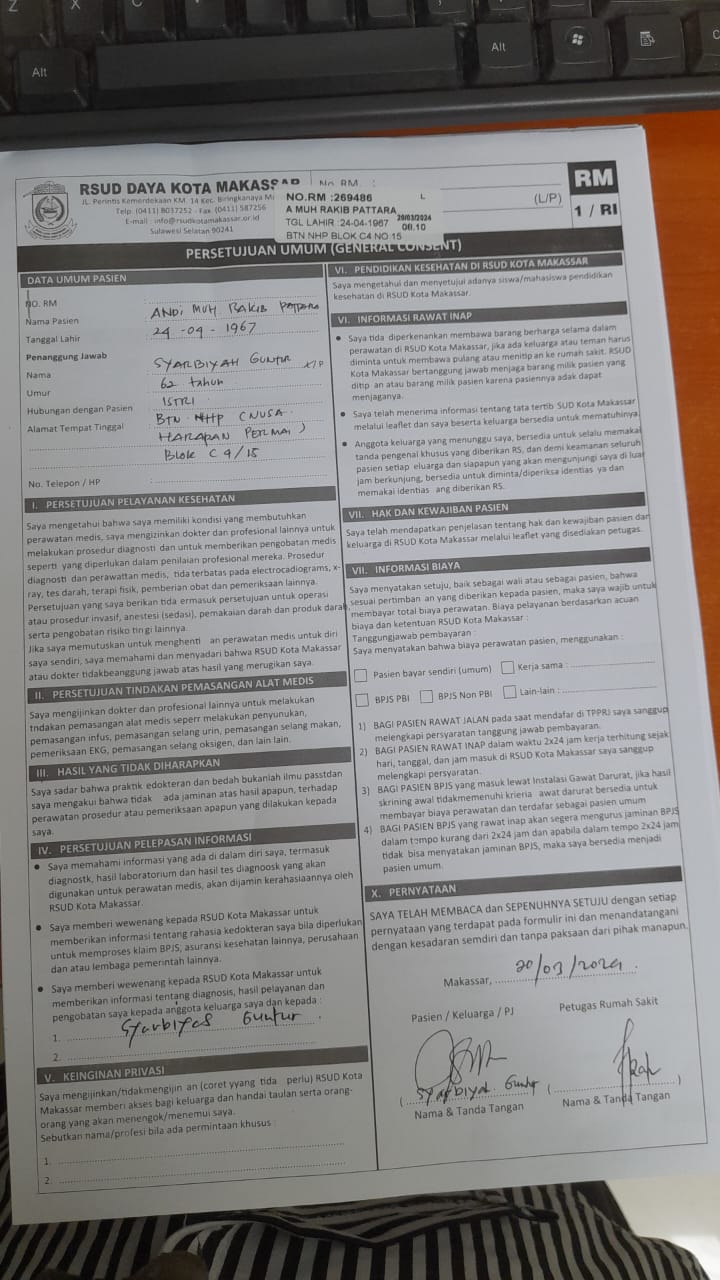 Z
X
C
Alt
Alt
RSUD DAYA KOTA MAKASSAR
JL. Perintis Kemerdekaan KM. 14 Kec. Biringkanaya
Telp. (0411) 8037252 - Fax (0411) 587256
E-mail : info@rsudkotamakassar.or.id
Sulawesi Selatan 90241
No. RM :
(L/P)
RM
1 / RI
NO.RM :269486 L
A MUH RAKIB PATTARA
TGL LAHIR :24-04-1967
20/03/2024
08.10
BTN NHP BLOK C4 NO 15
PERSETUJUAN UMUM (GENERAL CONSENT)
DATA UMUM PASIEN
NO. RM :
Nama Pasien : ANDI MUH RAKIB PATTARA
Tanggal Lahir : 24 - 04 - 1967
Penanggung Jawab
Nama : SYARBIYAH GUNTUR
Umur : 62 tahun
Hubungan dengan Pasien : ISTRI
Alamat Tempat Tinggal : BTN NHP (NUSA
HARAPAN PERMAI)
Blok C 4/15
No. Telepon / HP :
I. PERSETUJUAN PELAYANAN KESEHATAN
Saya mengetahui bahwa saya memiliki kondisi yang membutuhkan
perawatan medis, saya mengizinkan dokter dan profesional lainnya untuk
melakukan prosedur diagnosti dan untuk memberikan pengobatan medis
seperti yang diperlukan dalam penilaian profesional mereka. Prosedur
diagnosti dan perawattan medis, tida terbatas pada electrocadiograms, x-
ray, tes darah, terapi fisik, pemberian obat dan pemeriksaan lainnya.
Persetujuan yang saya berikan tida ermasuk persetujuan untuk operasi
atau prosedur invasif, anestesi (sedasi), pemakaian darah dan produk darah,
serta pengobatan risiko tin gi lainnya.
Jika saya memutuskan untuk menghenti an perawatan medis untuk diri
saya sendiri, saya memahami dan menyadari bahwa RSUD Kota Makassar
atau dokter tidakbeanggung jawab atas hasil yang merugikan saya.
II. PERSETUJUAN TINDAKAN PEMASANGAN ALAT MEDIS
Saya mengijinkan dokter dan profesional lainnya untuk melakukan
tndakan pemasangan alat medis seperr melakukan penyunukan,
pemasangan infus, pemasangan selang urin, pemasangan selang makan,
pemeriksaan EKG, pemasangan selang oksigen, dan lain lain.
III. HASIL YANG TIDAK DIHARAPKAN
Saya sadar bahwa praktik edokteran dan bedah bukanlah ilmu passtdan
saya mengakui bahwa tidak ada jaminan atas hasil apapun, terhadap
perawatan prosedur atau pemeriksaan apapun yang dilakukan kepada
saya.
IV. PERSETUJUAN PELEPASAN INFORMASI
● Saya memahami informasi yang ada di dalam diri saya, termasuk
diagnostk, hasil laboratorium dan hasil tes diagnoosk yang akan
digunakan untuk perawatan medis, akan dijamin kerahasiaannya oleh
RSUD Kota Makassar.
● Saya memberi wewenang kepada RSUD Kota Makassar untuk
memberikan informasi tentang rahasia kedokteran saya bila diperlukan
untuk memproses klaim BPJS, asuransi kesehatan lainnya, perusahaan
dan atau lembaga pemerintah lainnya.
● Saya memberi wewenang kepada RSUD Kota Makassar untuk
memberikan informasi tentang diagnosis, hasil pelayanan dan
pengobatan saya kepada anggota keluarga saya dan kepada :
1. Syarbiyah Guntur
2.
V. KEINGINAN PRIVASI
Saya mengijinkan/tidakmengijin an (coret yyang tida perlu) RSUD Kota
Makassar memberi akses bagi keluarga dan handai taulan serta orang-
orang yang akan menengok/menemui saya.
Sebutkan nama/profesi bila ada permintaan khusus :
1.
2.
VI. PENDIDIKAN KESEHATAN DI RSUD KOTA MAKASSAR
Saya mengetahui dan menyetujui adanya siswa/mahasiswa pendidikan
kesehatan di RSUD Kota Makassar.
VI. INFORMASI RAWAT INAP
● Saya tida diperkenankan membawa barang berharga selama dalam
perawatan di RSUD Kota Makassar, jika ada keluarga atau teman harus
diminta untuk membawa pulang atau menitip ke rumah sakit. RSUD
Kota Makassar bertanggung jawab menjaga barang milik pasien yang
ditip an atau barang milik pasien karena pasiennya adak dapat
menjaganya.
● Saya telah menerima informasi tentang tata tertib SUD Kota Makassar
melalui leaflet dan saya beserta keluarga bersedia untuk mematuhinya.
● Anggota keluarga yang menunggu saya, bersedia untuk selalu memakai
tanda pengenal khusus yang diberikan RS, dan demi keamanan seluruh
pasien setiap eluarga dan siapapun yang akan mengunjungi saya di luar
jam berkunjung, bersedia untuk diminta/diperiksa identias ya dan
memakai identias ang diberikan RS.
VII. HAK DAN KEWAJIBAN PASIEN
Saya telah mendapatkan penjelasan tentang hak dan kewajiban pasien dan
keluarga di RSUD Kota Makassar melalui leaflet yang disediakan petugas.
VII. INFORMASI BIAYA
Saya menyatakan setuju, baik sebagai wali atau sebagai pasien, bahwa
sesuai pertimban an yang diberikan kepada pasien, maka saya wajib untuk
membayar total biaya perawatan. Biaya pelayanan berdasarkan acuan
biaya dan ketentuan RSUD Kota Makassar :
Tanggungjawab pembayaran :
Saya menyatakan bahwa biaya perawatan pasien, menggunakan :
Pasien bayar sendiri (umum) Kerja sama :
BPJS PBI BPJS Non PBI Lain-lain :
1) BAGI PASIEN RAWAT JALAN pada saat mendafar di TPPRJ saya sanggup
melengkapi persyaratan tanggung jawab pembayaran.
2) BAGI PASIEN RAWAT INAP dalam waktu 2x24 jam kerja terhitung sejak
hari, tanggal, dan jam masuk di RSUD Kota Makassar saya sanggup
melengkapi persyaratan.
3) BAGI PASIEN BPJS yang masuk lewat Instalasi Gawat Darurat, jika hasil
skrining awal tidakmemenuhi krieria awat darurat bersedia untuk
membayar biaya perawatan dan terdafar sebagai pasien umum
4) BAGI PASIEN BPJS yang rawat inap akan segera mengurus jaminan BPJS
dalam tempo kurang dari 2x24 jam dan apabila dalam tempo 2x24 jam
tidak bisa menyatakan jaminan BPJS, maka saya bersedia menjadi
pasien umum.
X. PERNYATAAN
SAYA TELAH MEMBACA dan SEPENUHNYA SETUJU dengan setiap
pernyataan yang terdapat pada formulir ini dan menandatangani
dengan kesadaran semdiri dan tanpa paksaan dari pihak manapun.
Makassar, 20/03/2024.
Pasien / Keluarga / PJ Petugas Rumah Sakit
( Syarbiyah Guntur ) ( )
Nama & Tanda Tangan Nama & Tanda Tangan